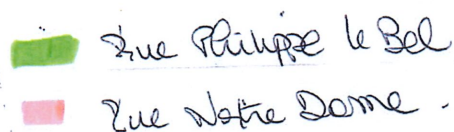 Rue Philippe le Bel
Rue Notre Dame.